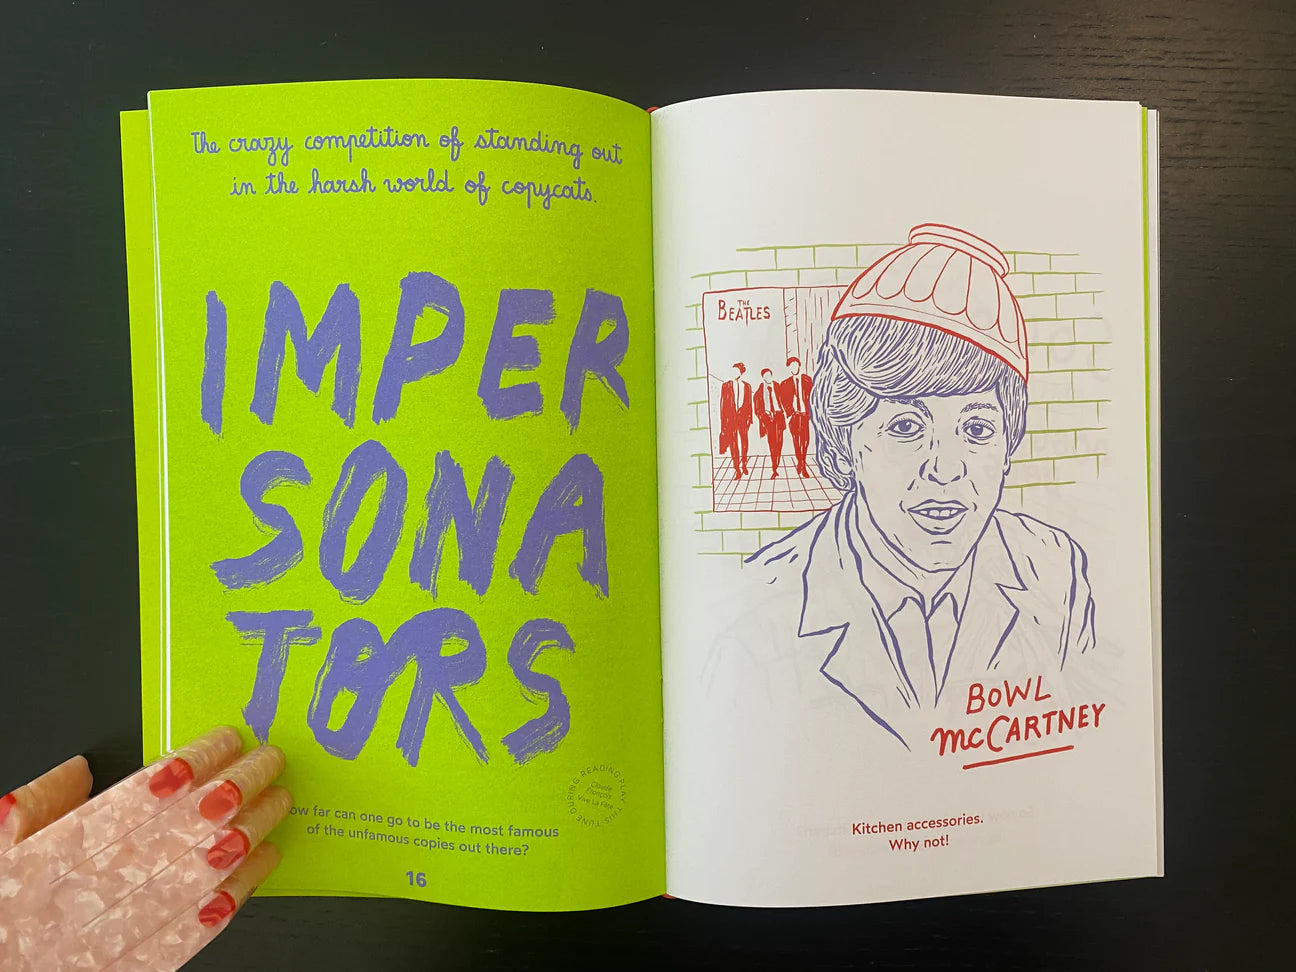 The crazy competition of standing out
in the harsh world of copycats.
IMPER
SONA
TORS
DURING READING PLAY THIS TUNE
Claude
François
Vive La Fête
ow far can one go to be the most famous
of the unfamous copies out there?
16
THE
BEATLES
BOWL
McCARTNEY
Kitchen accessories.
Why not!